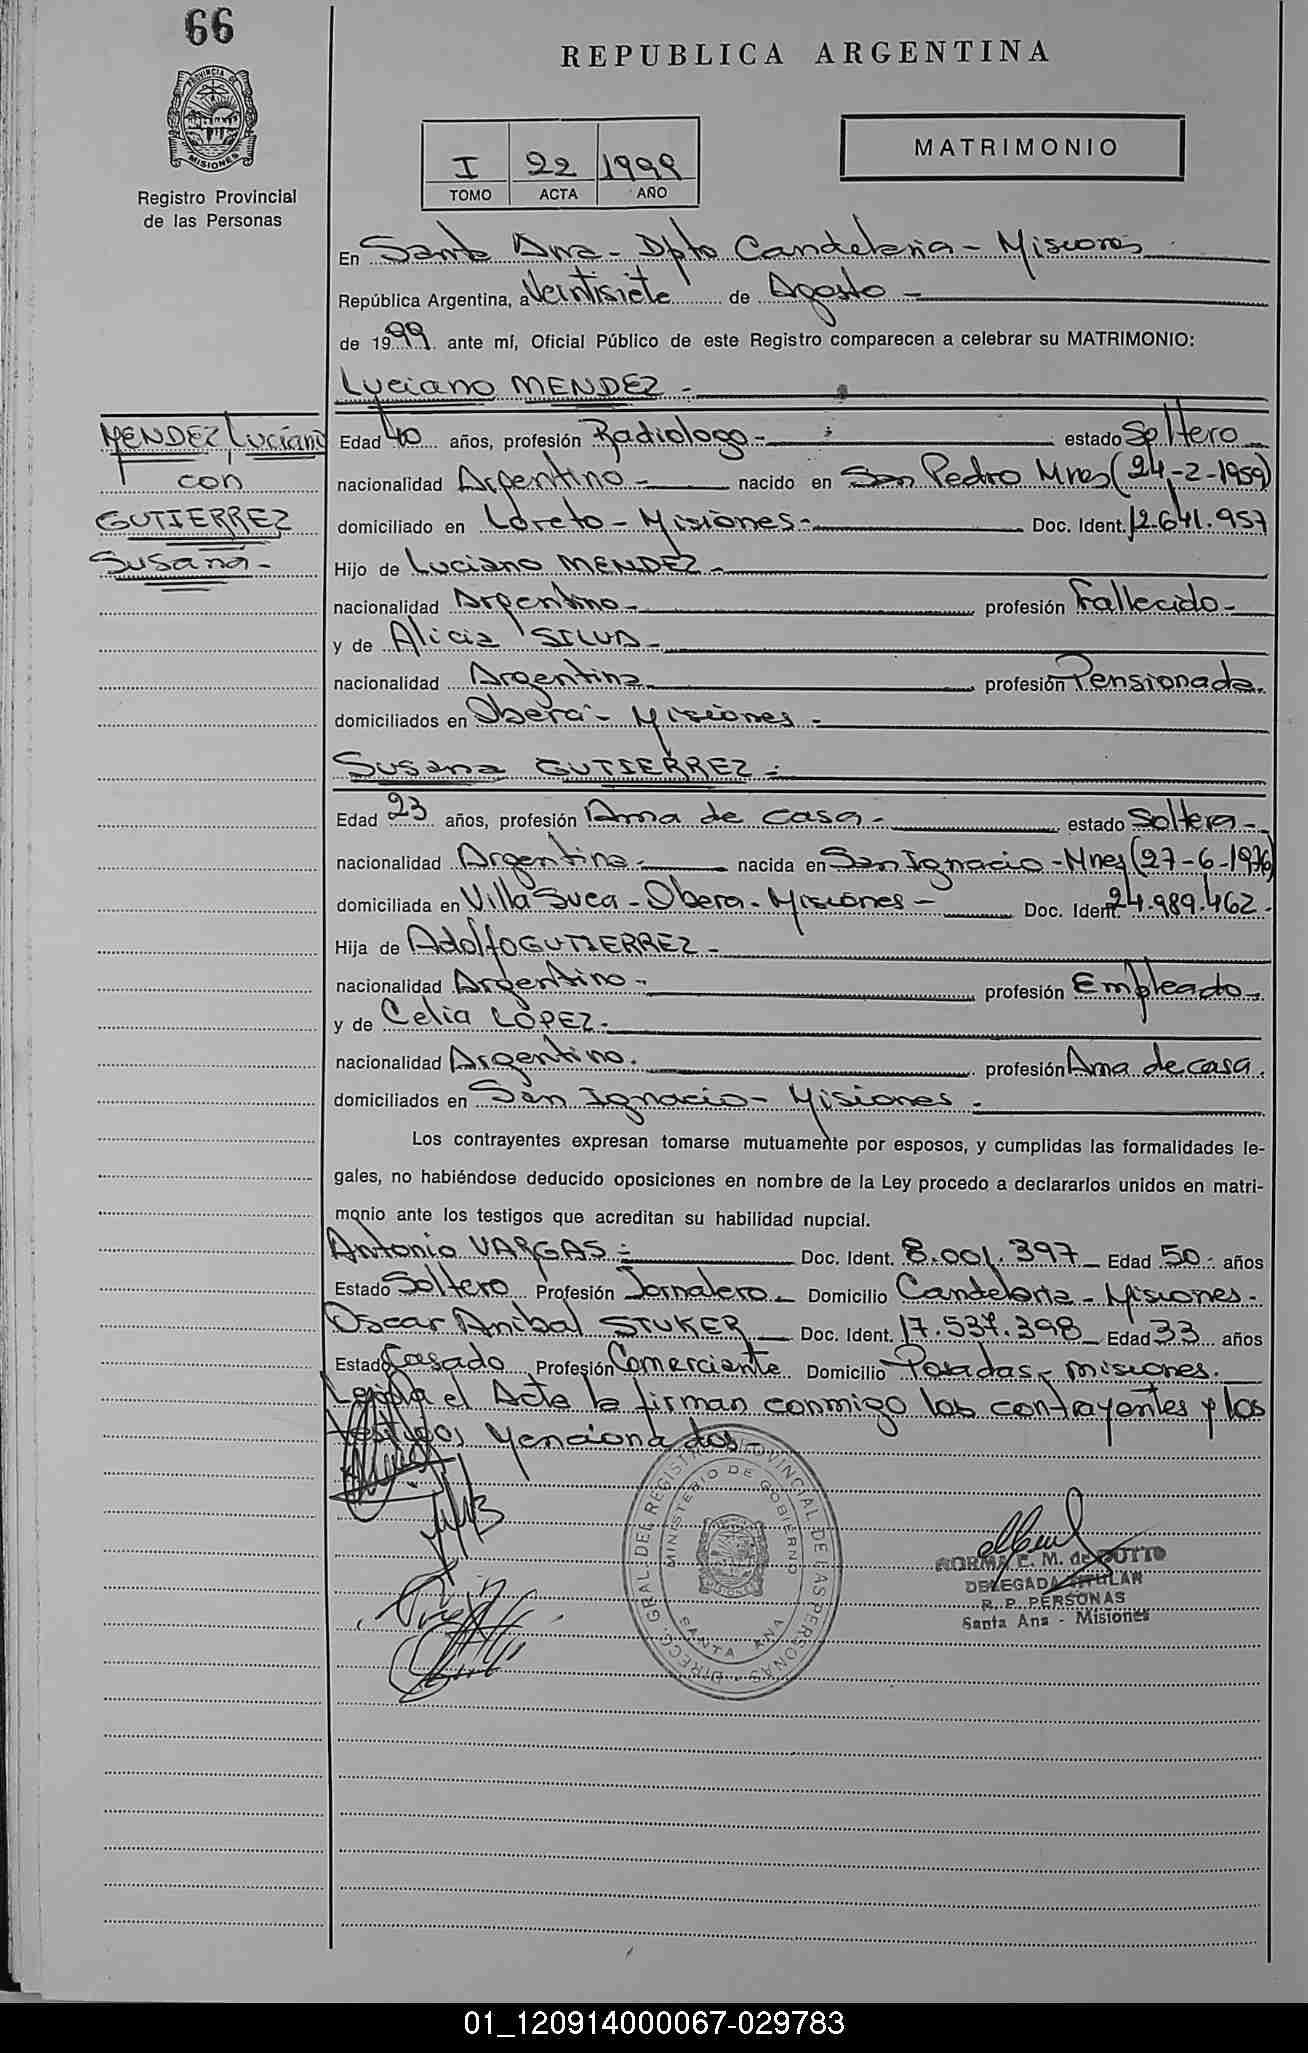 66
REPUBLICA ARGENTINA
PROVINCIA DE
MISIONES
Registro Provincial
de las Personas
I 22 1999
TOMO ACTA AÑO
MATRIMONIO
En Santa Ana - Dpto Candelaria - Misiones
República Argentina, a Veintisiete de Agosto -
de 1999 ante mí, Oficial Público de este Registro comparecen a celebrar su MATRIMONIO:
Luciano MENDEZ -
MENDEZ Luciano
con
GUTIERREZ
Susana -
Edad 40 años, profesión Radiologo - estado Soltero
nacionalidad Argentino - nacido en San Pedro Mnes (24-2-1959)
domiciliado en Loreto - Misiones - Doc. Ident. 12.641.957
Hijo de Luciano MENDEZ -
nacionalidad Argentino - profesión Fallecido -
y de Alicia SILVA -
nacionalidad Argentina profesión Pensionada.
domiciliados en Oberá - Misiones -
Susana GUTIERREZ -
Edad 23 años, profesión Ama de casa - estado Soltera -
nacionalidad Argentina - nacida en San Ignacio - Mnes (27-6-1976)
domiciliada en Villa Svea - Obera - Misiones - Doc. Ident. 24.989.462 -
Hija de Adolfo GUTIERREZ -
nacionalidad Argentino - profesión Empleado -
y de Celia LÓPEZ -
nacionalidad Argentino. profesión Ama de casa.
domiciliados en San Ignacio - Misiones -
Los contrayentes expresan tomarse mutuamente por esposos, y cumplidas las formalidades le-
gales, no habiéndose deducido oposiciones en nombre de la Ley procedo a declararlos unidos en matri-
monio ante los testigos que acreditan su habilidad nupcial.
Antonio VARGAS - Doc. Ident. 8.001.397 - Edad 50 - años
Estado Soltero Profesión Jornalero - Domicilio Candelaria - Misiones -
Oscar Anibal STUKER - Doc. Ident. 17.537.398 - Edad 33 años
Estado Casado Profesión Comerciante Domicilio Posadas - misiones.
Leída el Acta la firman conmigo los contrayentes y los
testigos Mencionados -
DIRECC. GRAL. DEL REGISTRO PROVINCIAL DE LAS PERSONAS
MINISTERIO DE GOBIERNO
SANTA ANA
NORMA E. M. de DUTTO
DELEGADA TITULAR
R. P. PERSONAS
Santa Ana - Misiones
01_120914000067-029783